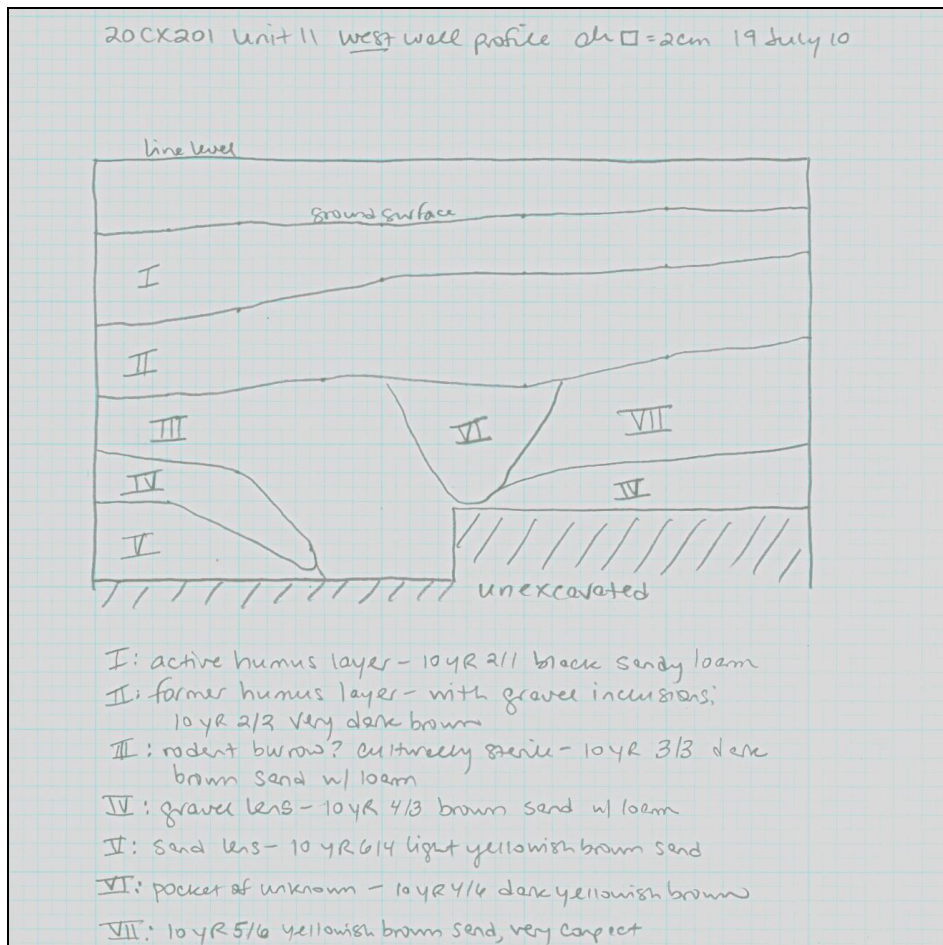 20CX201 Unit 11 west wall profile □=2cm 19 July 10
line level
ground surface
I
II
III
VI
VII
IV
IV
V
unexcavated
I: active humus layer - 10YR 2/1 black sandy loam
II: former humus layer - with gravel inclusions;
10YR 2/2 very dark brown
III: rodent burrow? culturally sterile - 10YR 3/3 dark
brown sand w/ loam
IV: gravel lens - 10YR 4/3 brown sand w/ loam
V: sand lens - 10YR 6/4 light yellowish brown sand
VI: pocket of unknown - 10YR 4/6 dark yellowish brown
VII: 10YR 5/6 yellowish brown sand, very compact